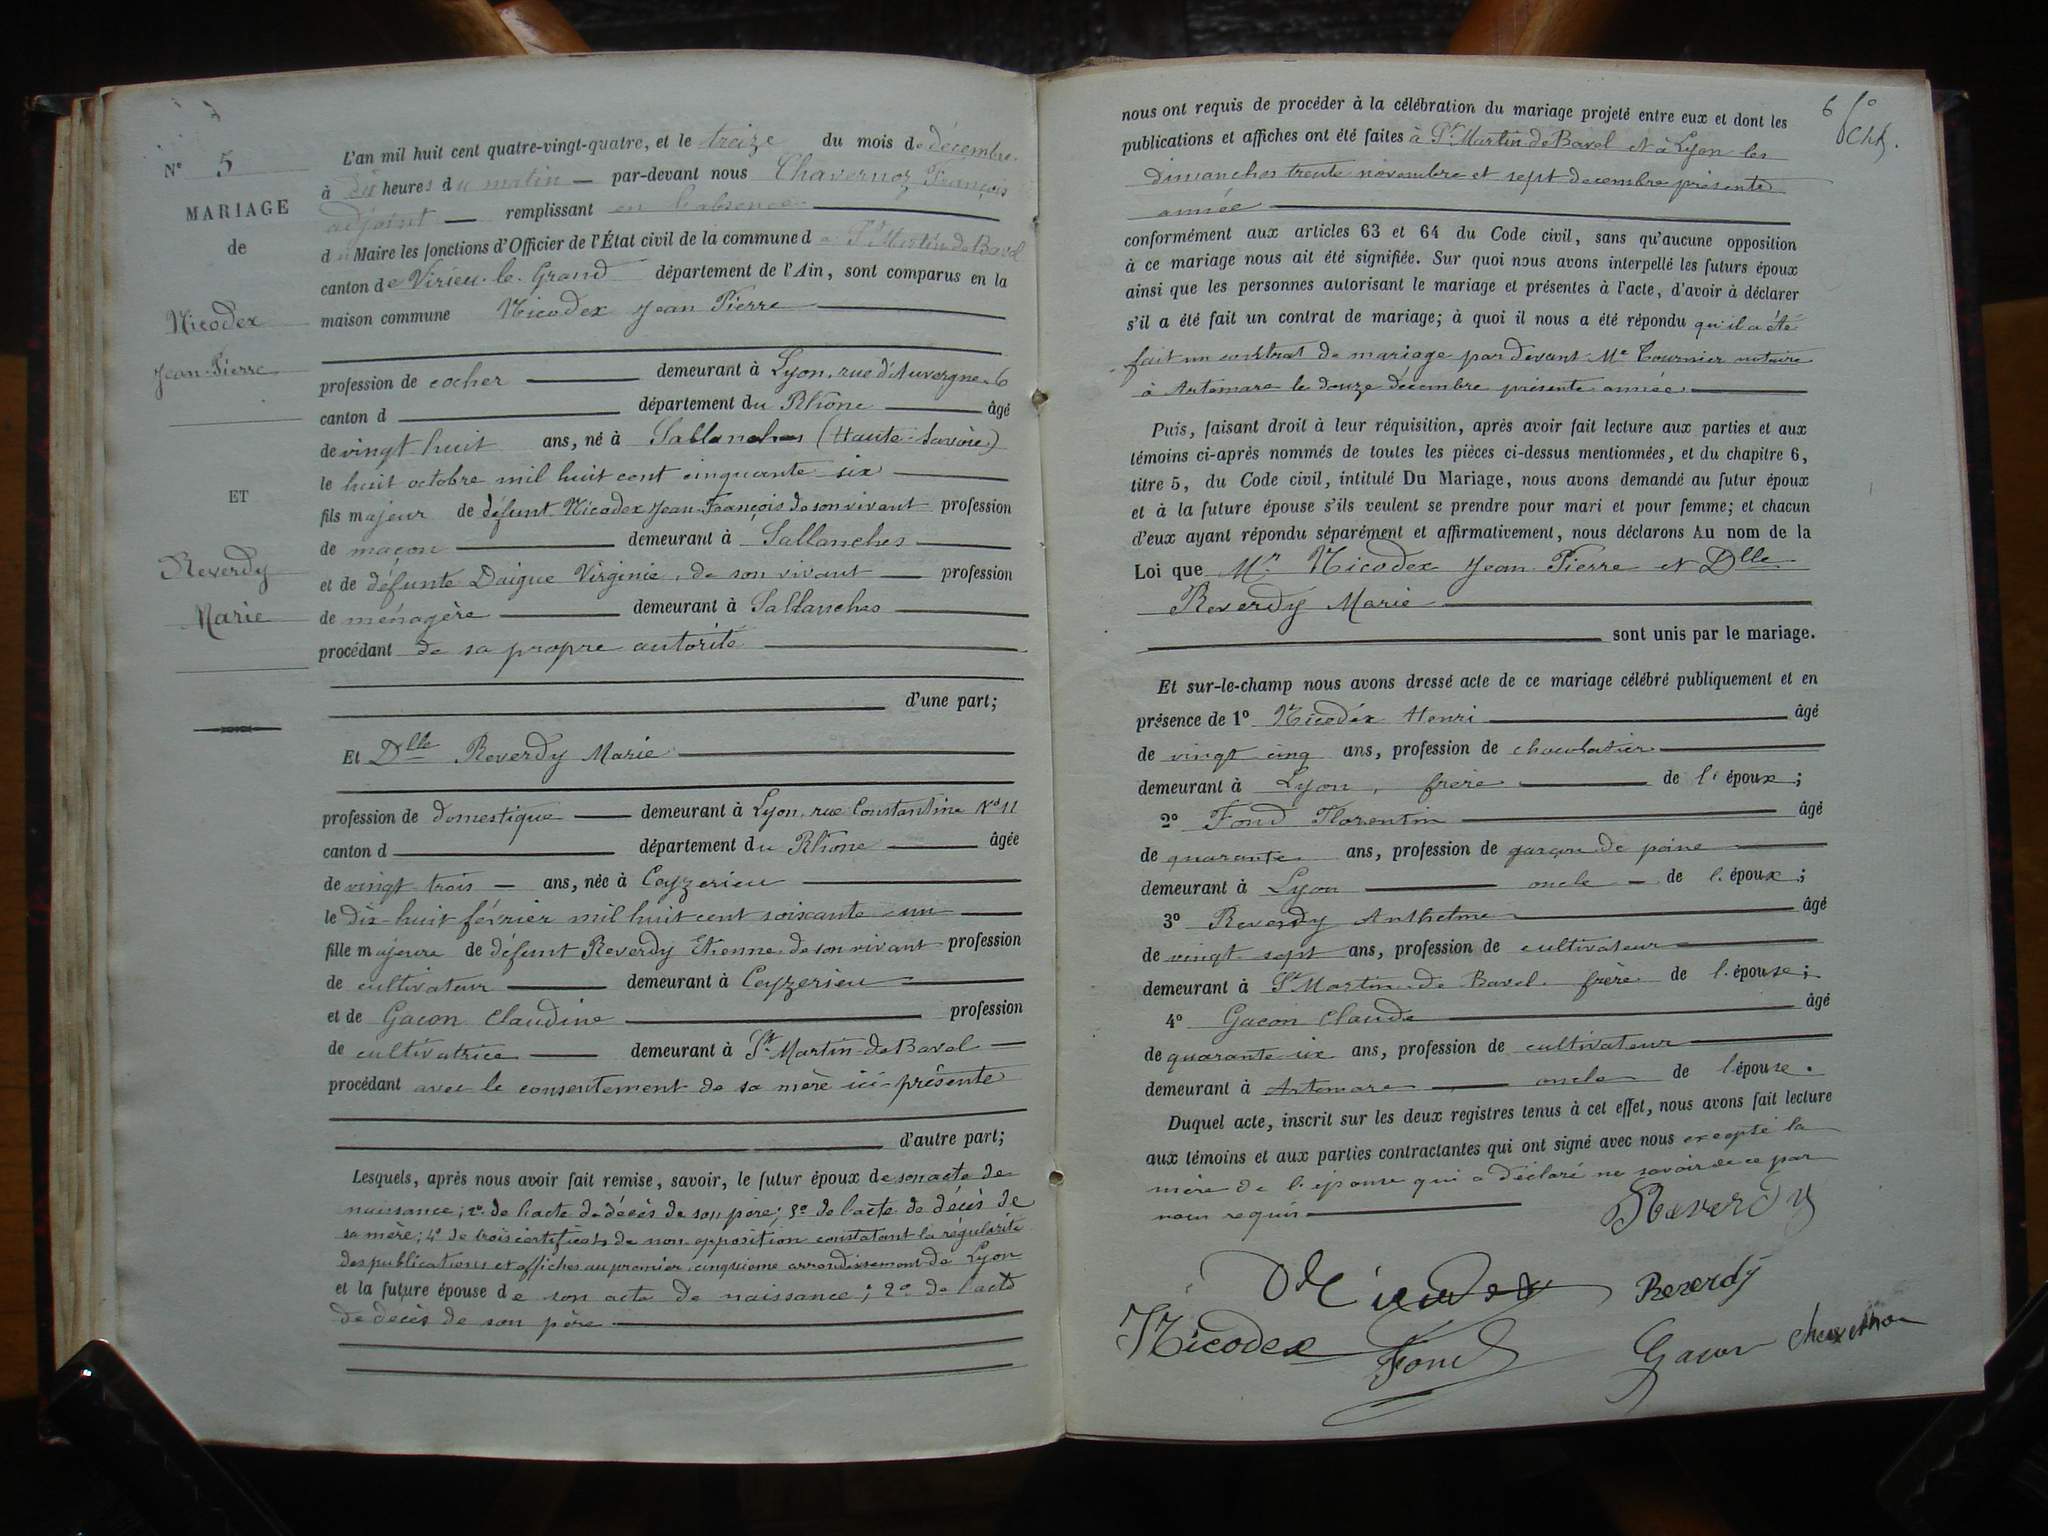 N° 5
MARIAGE
de
Nicodex
Jean-Pierre
ET
Reverdy
Marie
L'an mil huit cent quatre-vingt-quatre, et le treize du mois de décembre
à dix heures du matin — par-devant nous Chavernoz François
adjoint — remplissant en l'absence
du Maire les fonctions d'Officier de l'État civil de la commune de St Martin de Bavel
canton de Virieu-le-Grand département de l'Ain, sont comparus en la
maison commune Nicodex Jean Pierre
profession de cocher demeurant à Lyon, rue d'Auvergne, 6
canton d département du Rhône âgé
de vingt huit ans, né à Sallanches (Haute-Savoie)
le huit octobre mil huit cent cinquante-six
fils majeur de défunt Nicodex Jean-François de son vivant profession
de maçon demeurant à Sallanches
et de défunte Daigue Virginie, de son vivant profession
de ménagère demeurant à Sallanches
procédant de sa propre autorité
d'une part;
Et Dlle Reverdy Marie
profession de domestique demeurant à Lyon, rue Constantine N° 11
canton d département du Rhône âgée
de vingt trois — ans, née à Ceyzerieu
le dix-huit février mil huit cent soixante-un
fille majeure de défunt Reverdy Etienne de son vivant profession
de cultivateur demeurant à Ceyzerieu
et de Gacon Claudine profession
de cultivatrice demeurant à St Martin-de-Bavel
procédant avec le consentement de sa mère ici présente
d'autre part;
Lesquels, après nous avoir fait remise, savoir, le futur époux de son acte de
naissance; 2° de l'acte de décès de son père; 3° de l'acte de décès de
sa mère; 4° de trois certificats de non opposition constatant la régularité
des publications et affiches au premier, cinquième arrondissement de Lyon
et la future épouse de son acte de naissance; 2° de l'acte
de décès de son père
6
nous ont requis de procéder à la célébration du mariage projeté entre eux et dont les
publications et affiches ont été faites à St Martin de Bavel et à Lyon les
dimanches trente novembre et sept decembre présente
année
conformément aux articles 63 et 64 du Code civil, sans qu'aucune opposition
à ce mariage nous ait été signifiée. Sur quoi nous avons interpellé les futurs époux
ainsi que les personnes autorisant le mariage et présentes à l'acte, d'avoir à déclarer
s'il a été fait un contrat de mariage; à quoi il nous a été répondu qu'il a été
fait un contrat de mariage par devant Me Tournier notaire
à Artemare le douze décembre présente année
Puis, faisant droit à leur réquisition, après avoir fait lecture aux parties et aux
témoins ci-après nommés de toutes les pièces ci-dessus mentionnées, et du chapitre 6,
titre 5, du Code civil, intitulé Du Mariage, nous avons demandé au futur époux
et à la future épouse s'ils veulent se prendre pour mari et pour femme; et chacun
d'eux ayant répondu séparément et affirmativement, nous déclarons Au nom de la
Loi que Mr Nicodex Jean-Pierre et Dlle
Reverdy Marie
sont unis par le mariage.
Et sur-le-champ nous avons dressé acte de ce mariage célébré publiquement et en
présence de 1° Nicodex Henri âgé
de vingt cinq ans, profession de chocolatier
demeurant à Lyon, frère de l'époux;
2° Fond Florentin âgé
de quarante ans, profession de garçon de peine
demeurant à Lyon oncle — de l'époux;
3° Reverdy Anthelme âgé
de vingt-sept ans, profession de cultivateur
demeurant à St Martin-de-Bavel, frère de l'épouse;
4° Gacon Claude âgé
de quarante-six ans, profession de cultivateur
demeurant à Artemare, oncle de l'épouse.
Duquel acte, inscrit sur les deux registres tenus à cet effet, nous avons fait lecture
aux témoins et aux parties contractantes qui ont signé avec nous excepté la
mère de l'épouse qui a déclaré ne savoir de ce par
nous requis
Reverdy
Nicodex Reverdy
Nicodex Fond Gacon